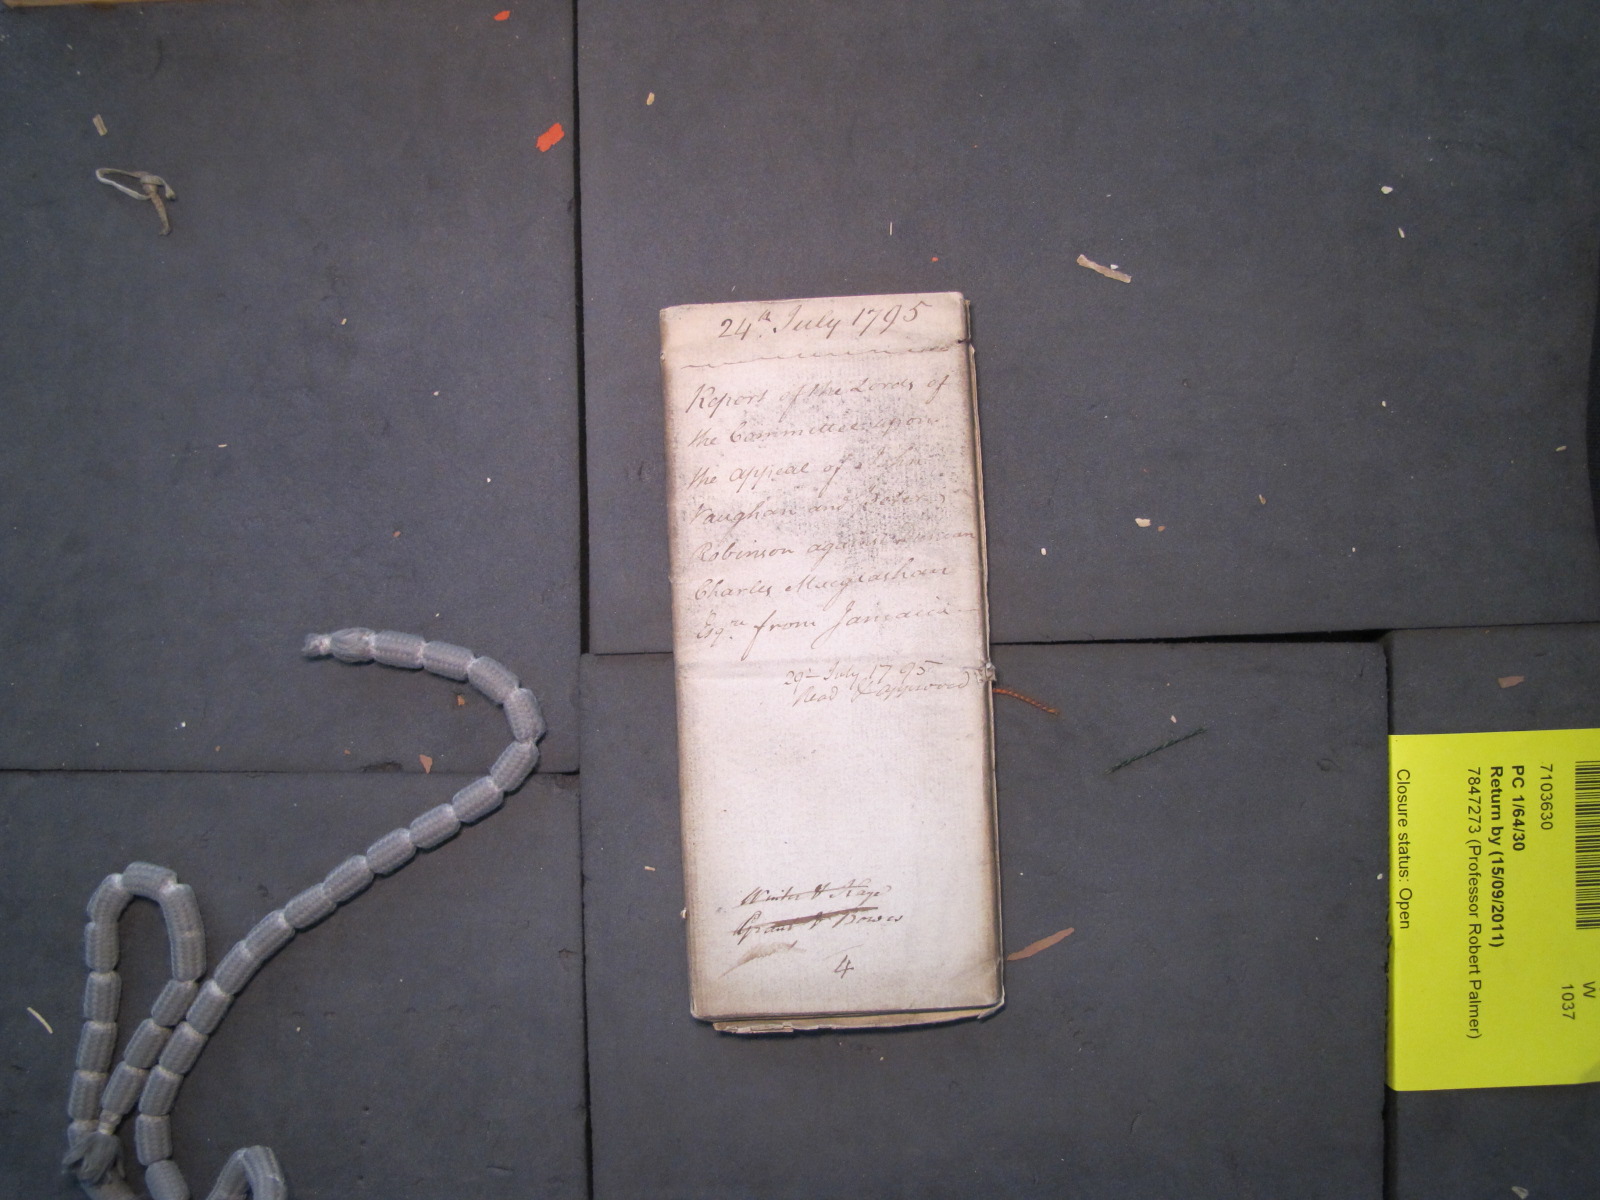 24th. July 1795
Report of the Lords of
the Committee upon
the appeal of John
Vaughan and
Robinson against
Charles Macglashan
Esqre. from Jamaica
29th July 1795
Read & approved
Winter & Kaye
Grant & Bowes
4
W
1037
7103630
PC 1/64/30
Return by (15/09/2011)
7847273 (Professor Robert Palmer)
Closure status: Open